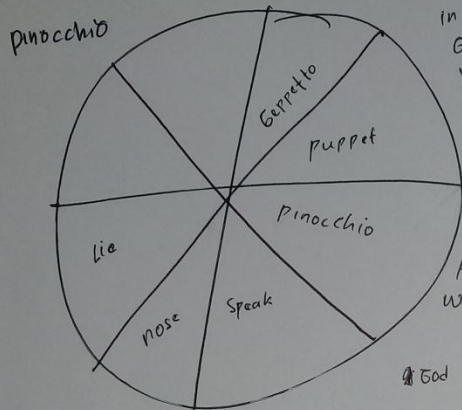 pinocchio
in
Geppetto
puppet
pinocchio
Lie
nose
Speak
God